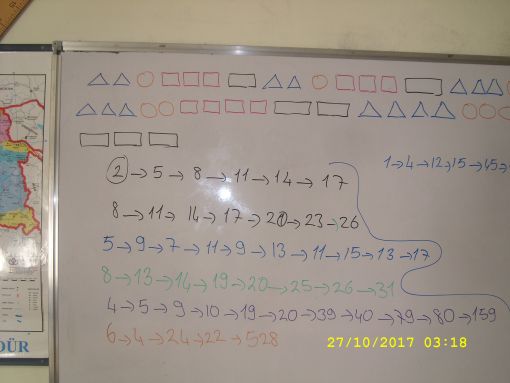 2 → 5 → 8 → 11 → 14 → 17
1 → 4 → 12 → 15 → 45 →
8 → 11 → 14 → 17 → 20 → 23 → 26
5 → 9 → 7 → 11 → 9 → 13 → 11 → 15 → 13 → 17
8 → 13 → 14 → 19 → 20 → 25 → 26 → 31
4 → 5 → 9 → 10 → 19 → 20 → 39 → 40 → 79 → 80 → 159
6 → 4 → 24 → 22 → 528
27/10/2017 03:18
DÜR